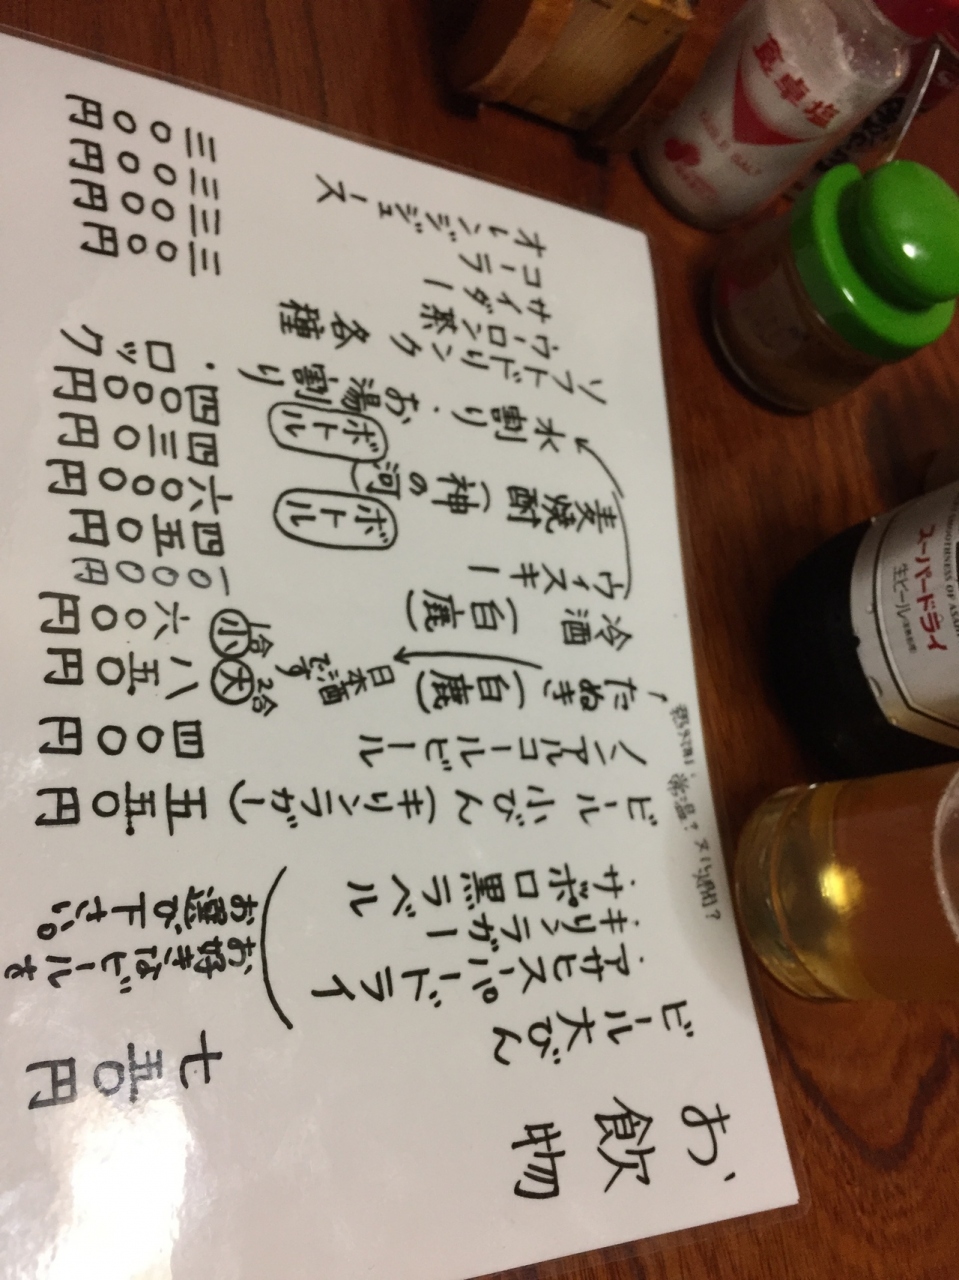 お飲物
ビール大びん 七五〇円
・アサヒスーパードライ
・キリンラガー
・サッポロ黒ラベル
お好きなビールを
お選び下さい。
ビール小びん(キリンラガー) 五五〇円
ノンアルコールビール 四〇〇円
常温?
たぬき(白鹿) 大 2合 八五〇円
日本酒です
小 1合 六〇〇円
冷酒(白鹿) 一〇〇〇円
ウィスキー 四五〇円
ボトル 六〇〇〇円
麦焼酎(神の河) 四三〇円
ボトル 四〇〇〇円
水割り・お湯割り・ロック
ソフトドリンク各種
ウーロン茶 三〇〇円
サイダー 三〇〇円
コーラ 三〇〇円
オレンジジュース 三〇〇円
食卓塩
TABLE SALT
スーパードライ
生ビール